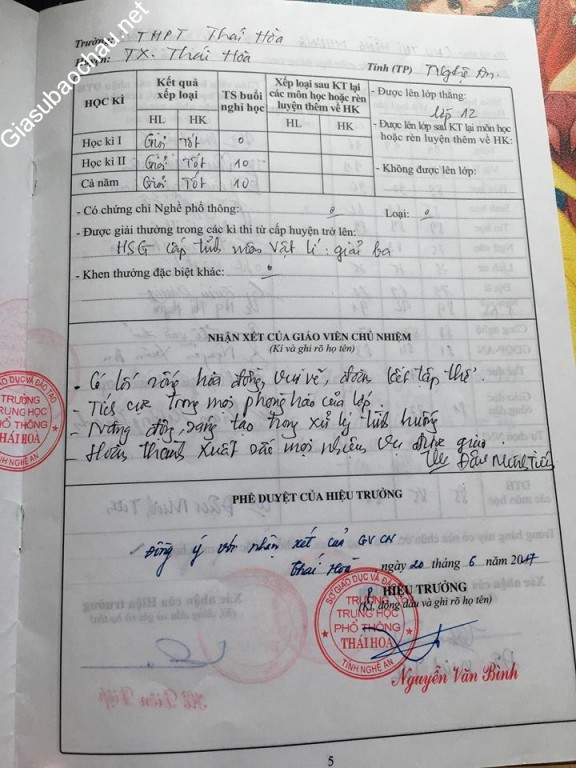 Giasubaochau.net
Trường: THPT Thái Hòa
Huyện: TX. Thái Hòa Tỉnh (TP) Nghệ An.
HỌC KÌ Kết quả xếp loại TS buổi nghỉ học Xếp loại sau KT lại các môn học hoặc rèn luyện thêm về HK
HL HK HL HK
Học kì I Giỏi Tốt 0
Học kì II Giỏi Tốt 10
Cả năm Giỏi Tốt 10
- Được lên lớp thẳng:
lớp 12
- Được lên lớp sau KT lại môn học
hoặc rèn luyện thêm về HK:
- Không được lên lớp:
- Có chứng chỉ Nghề phổ thông: 0 Loại: 0
- Được giải thưởng trong các kì thi từ cấp huyện trở lên:
HSG cấp tỉnh môn Vật lí: giải ba
- Khen thưởng đặc biệt khác: 0
NHẬN XÉT CỦA GIÁO VIÊN CHỦ NHIỆM
(Kí và ghi rõ họ tên)
- Có lối sống hòa đồng, vui vẻ, đoàn kết tập thể.
- Tích cực trong mọi phong trào của lớp.
- Năng động, sáng tạo trong xử lý tình huống
- Hoàn thành xuất sắc mọi nhiệm vụ được giao.
Đậu Minh Tiến
SỞ GIÁO DỤC VÀ ĐÀO TẠO
TRƯỜNG
TRUNG HỌC
PHỔ THÔNG
THÁI HOÀ
TỈNH NGHỆ AN
PHÊ DUYỆT CỦA HIỆU TRƯỞNG
Đồng ý với nhận xét của GVCN
Thái Hòa ngày 20 tháng 6 năm 2017
HIỆU TRƯỞNG
(Kí, đóng dấu và ghi rõ họ tên)
SỞ GIÁO DỤC VÀ ĐÀO TẠO
TRƯỜNG
TRUNG HỌC
PHỔ THÔNG
THÁI HOÀ
TỈNH NGHỆ AN
Nguyễn Văn Bình
5